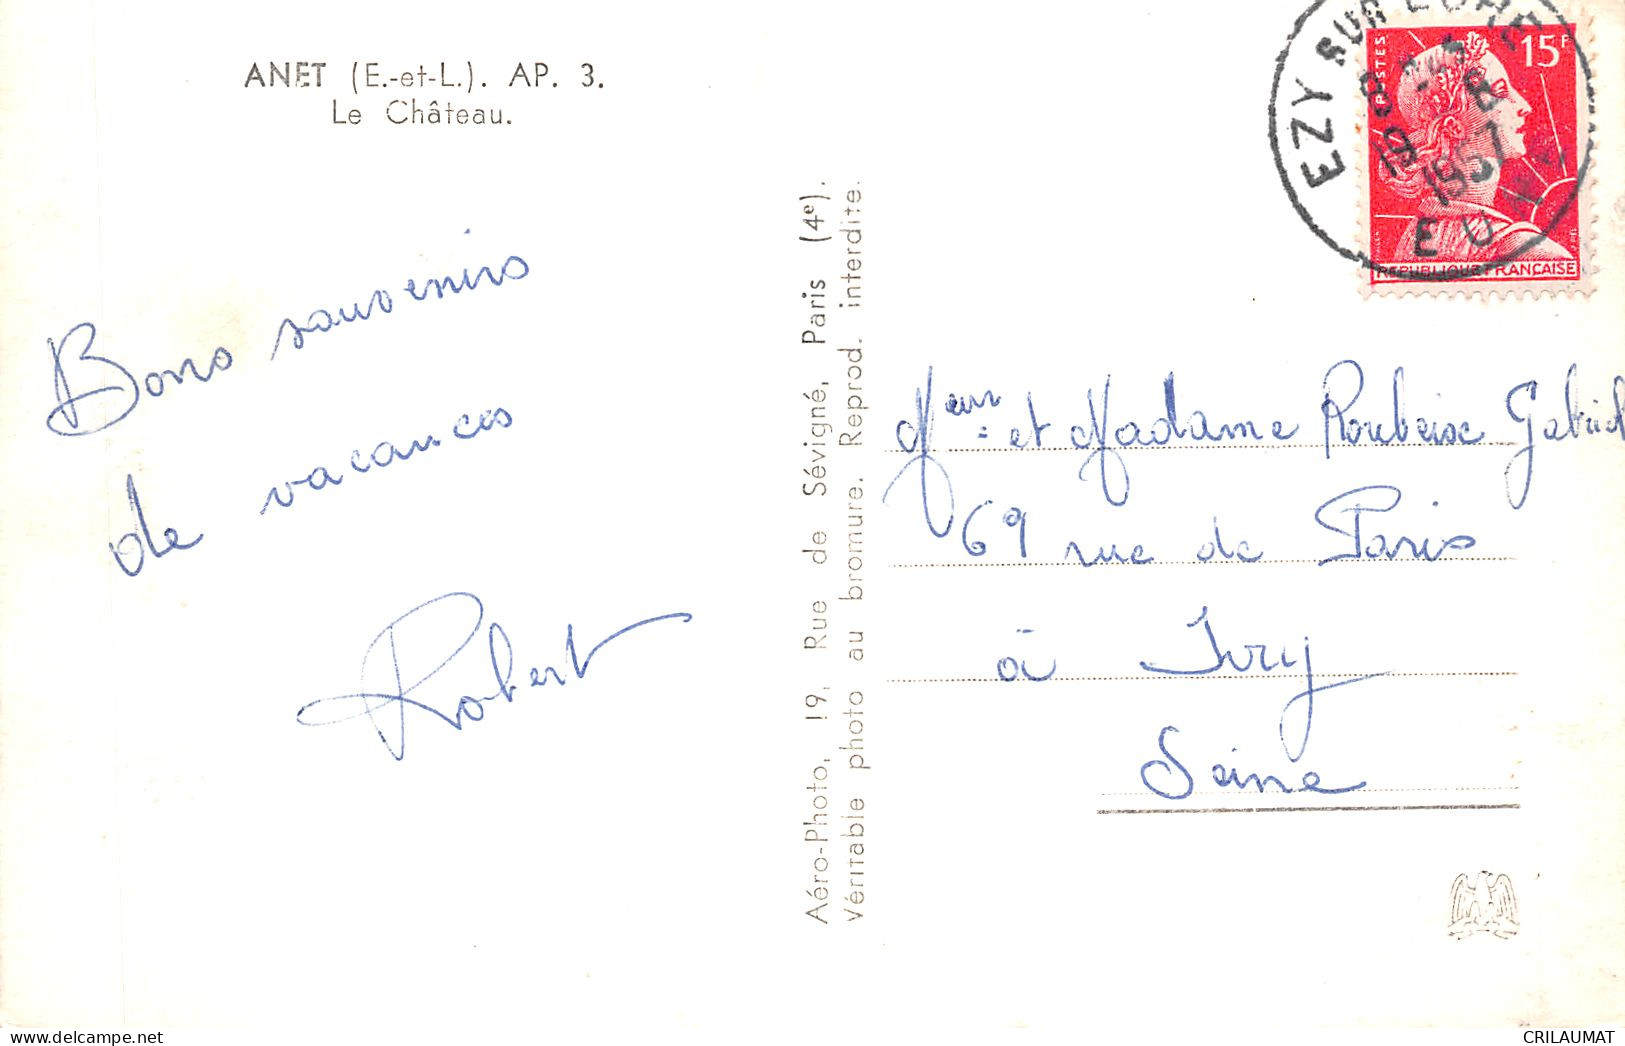 ANET (E.-et-L.). AP. 3.
Le Château.
Bons souvenirs
de vacances
Robert
Aéro-Photo, 19, Rue de Sévigné, Paris (4e).
Véritable photo au bromure. Reprod. interdite.
EZY SUR EURE
1957
POSTES
15F
REPUBLIQUE FRANÇAISE
Meur et Madame Roubeise Gabriel
69 rue de Paris
à Ivry
Seine
CRILAUMAT